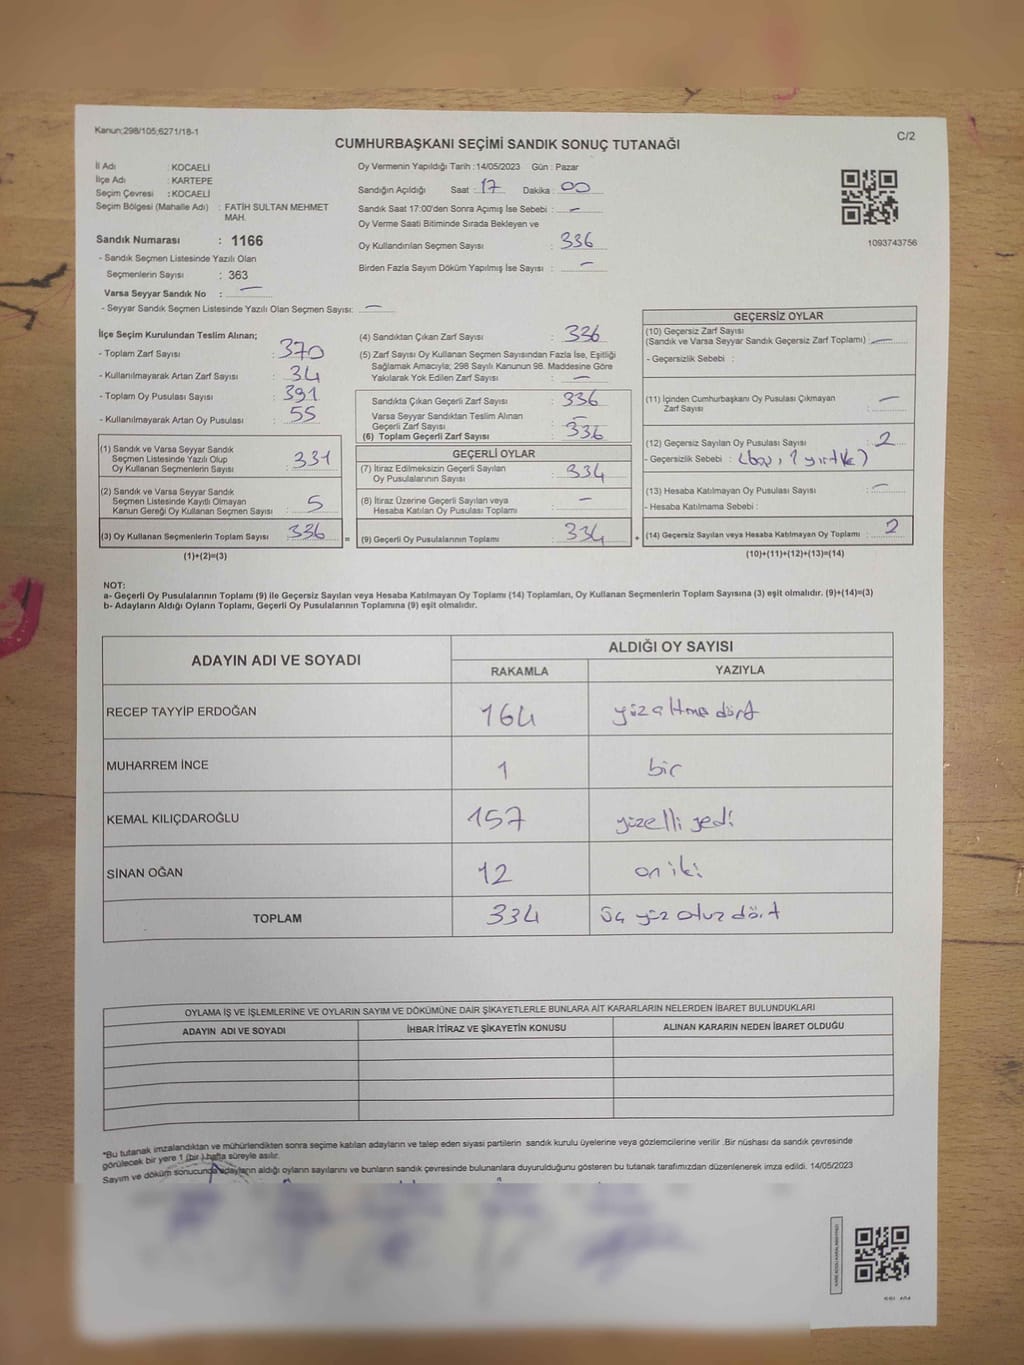 Kanun;298/105;6271/18-1
C/2
CUMHURBAŞKANI SEÇİMİ SANDIK SONUÇ TUTANAĞI
İl Adı : KOCAELİ
İlçe Adı : KARTEPE
Seçim Çevresi : KOCAELİ
Seçim Bölgesi (Mahalle Adı) : FATİH SULTAN MEHMET
MAH.
Sandık Numarası : 1166
- Sandık Seçmen Listesinde Yazılı Olan
Seçmenlerin Sayısı : 363
Varsa Seyyar Sandık No : —
- Seyyar Sandık Seçmen Listesinde Yazılı Olan Seçmen Sayısı: —
Oy Vermenin Yapıldığı Tarih : 14/05/2023 Gün : Pazar
Sandığın Açıldığı Saat : 17 Dakika : 00
Sandık Saat 17:00'den Sonra Açımış İse Sebebi : —
Oy Verme Saati Bitiminde Sırada Bekleyen ve
Oy Kullandırılan Seçmen Sayısı : 336
Birden Fazla Sayım Döküm Yapılmış İse Sayısı : —
1093743756
İlçe Seçim Kurulundan Teslim Alınan;
- Toplam Zarf Sayısı : 370
- Kullanılmayarak Artan Zarf Sayısı : 34
- Toplam Oy Pusulası Sayısı : 391
- Kullanılmayarak Artan Oy Pusulası : 55
(1) Sandık ve Varsa Seyyar Sandık
Seçmen Listesinde Yazılı Olup
Oy Kullanan Seçmenlerin Sayısı : 331
(2) Sandık ve Varsa Seyyar Sandık
Seçmen Listesinde Kayıtlı Olmayan
Kanun Gereği Oy Kullanan Seçmen Sayısı : 5
(3) Oy Kullanan Seçmenlerin Toplam Sayısı : 336 =
(1)+(2)=(3)
(4) Sandıktan Çıkan Zarf Sayısı : 336
(5) Zarf Sayısı Oy Kullanan Seçmen Sayısından Fazla İse, Eşitliği
Sağlamak Amacıyla; 298 Sayılı Kanunun 98. Maddesine Göre
Yakılarak Yok Edilen Zarf Sayısı : —
Sandıkta Çıkan Geçerli Zarf Sayısı : 336
Varsa Seyyar Sandıktan Teslim Alınan
Geçerli Zarf Sayısı : —
(6) Toplam Geçerli Zarf Sayısı : 336
GEÇERLİ OYLAR
(7) İtiraz Edilmeksizin Geçerli Sayılan
Oy Pusulalarının Sayısı : 334
(8) İtiraz Üzerine Geçerli Sayılan veya
Hesaba Katılan Oy Pusulası Toplamı : —
(9) Geçerli Oy Pusulalarının Toplamı : 334 +
GEÇERSİZ OYLAR
(10) Geçersiz Zarf Sayısı
(Sandık ve Varsa Seyyar Sandık Geçersiz Zarf Toplamı) : —
- Geçersizlik Sebebi :
(11) İçinden Cumhurbaşkanı Oy Pusulası Çıkmayan
Zarf Sayısı : —
(12) Geçersiz Sayılan Oy Pusulası Sayısı : 2
- Geçersizlik Sebebi : 1 yırtık)
(13) Hesaba Katılmayan Oy Pusulası Sayısı : —
- Hesaba Katılmama Sebebi :
(14) Geçersiz Sayılan veya Hesaba Katılmayan Oy Toplamı : 2
(10)+(11)+(12)+(13)=(14)
NOT:
a- Geçerli Oy Pusulalarının Toplamı (9) ile Geçersiz Sayılan veya Hesaba Katılmayan Oy Toplamı (14) Toplamları, Oy Kullanan Seçmenlerin Toplam Sayısına (3) eşit olmalıdır. (9)+(14)=(3)
b- Adayların Aldığı Oyların Toplamı, Geçerli Oy Pusulalarının Toplamına (9) eşit olmalıdır.
ADAYIN ADI VE SOYADI
ALDIĞI OY SAYISI
RAKAMLA YAZIYLA
RECEP TAYYİP ERDOĞAN 164 yüzaltmış dört
MUHARREM İNCE 1 bir
KEMAL KILIÇDAROĞLU 157 yüzelli yedi
SİNAN OĞAN 12 on iki
TOPLAM 334 üç yüz otuz dört
OYLAMA İŞ VE İŞLEMLERİNE VE OYLARIN SAYIM VE DÖKÜMÜNE DAİR ŞİKAYETLERLE BUNLARA AİT KARARLARIN NELERDEN İBARET BULUNDUKLARI
ADAYIN ADI VE SOYADI İHBAR İTİRAZ VE ŞİKAYETİN KONUSU ALINAN KARARIN NEDEN İBARET OLDUĞU
*Bu tutanak imzalandıktan ve mühürlendikten sonra seçime katılan adayların ve talep eden siyasi partilerin sandık kurulu üyelerine veya gözlemcilerine verilir .Bir nüshası da sandık çevresinde
görülecek bir yere 1 (bir ) hafta süreyle asılır.
Sayım ve döküm sonucunda adayların aldığı oyların sayılarını ve bunların sandık çevresinde bulunanlara duyurulduğunu gösteren bu tutanak tarafımızdan düzenlenerek imza edildi. 14/05/2023